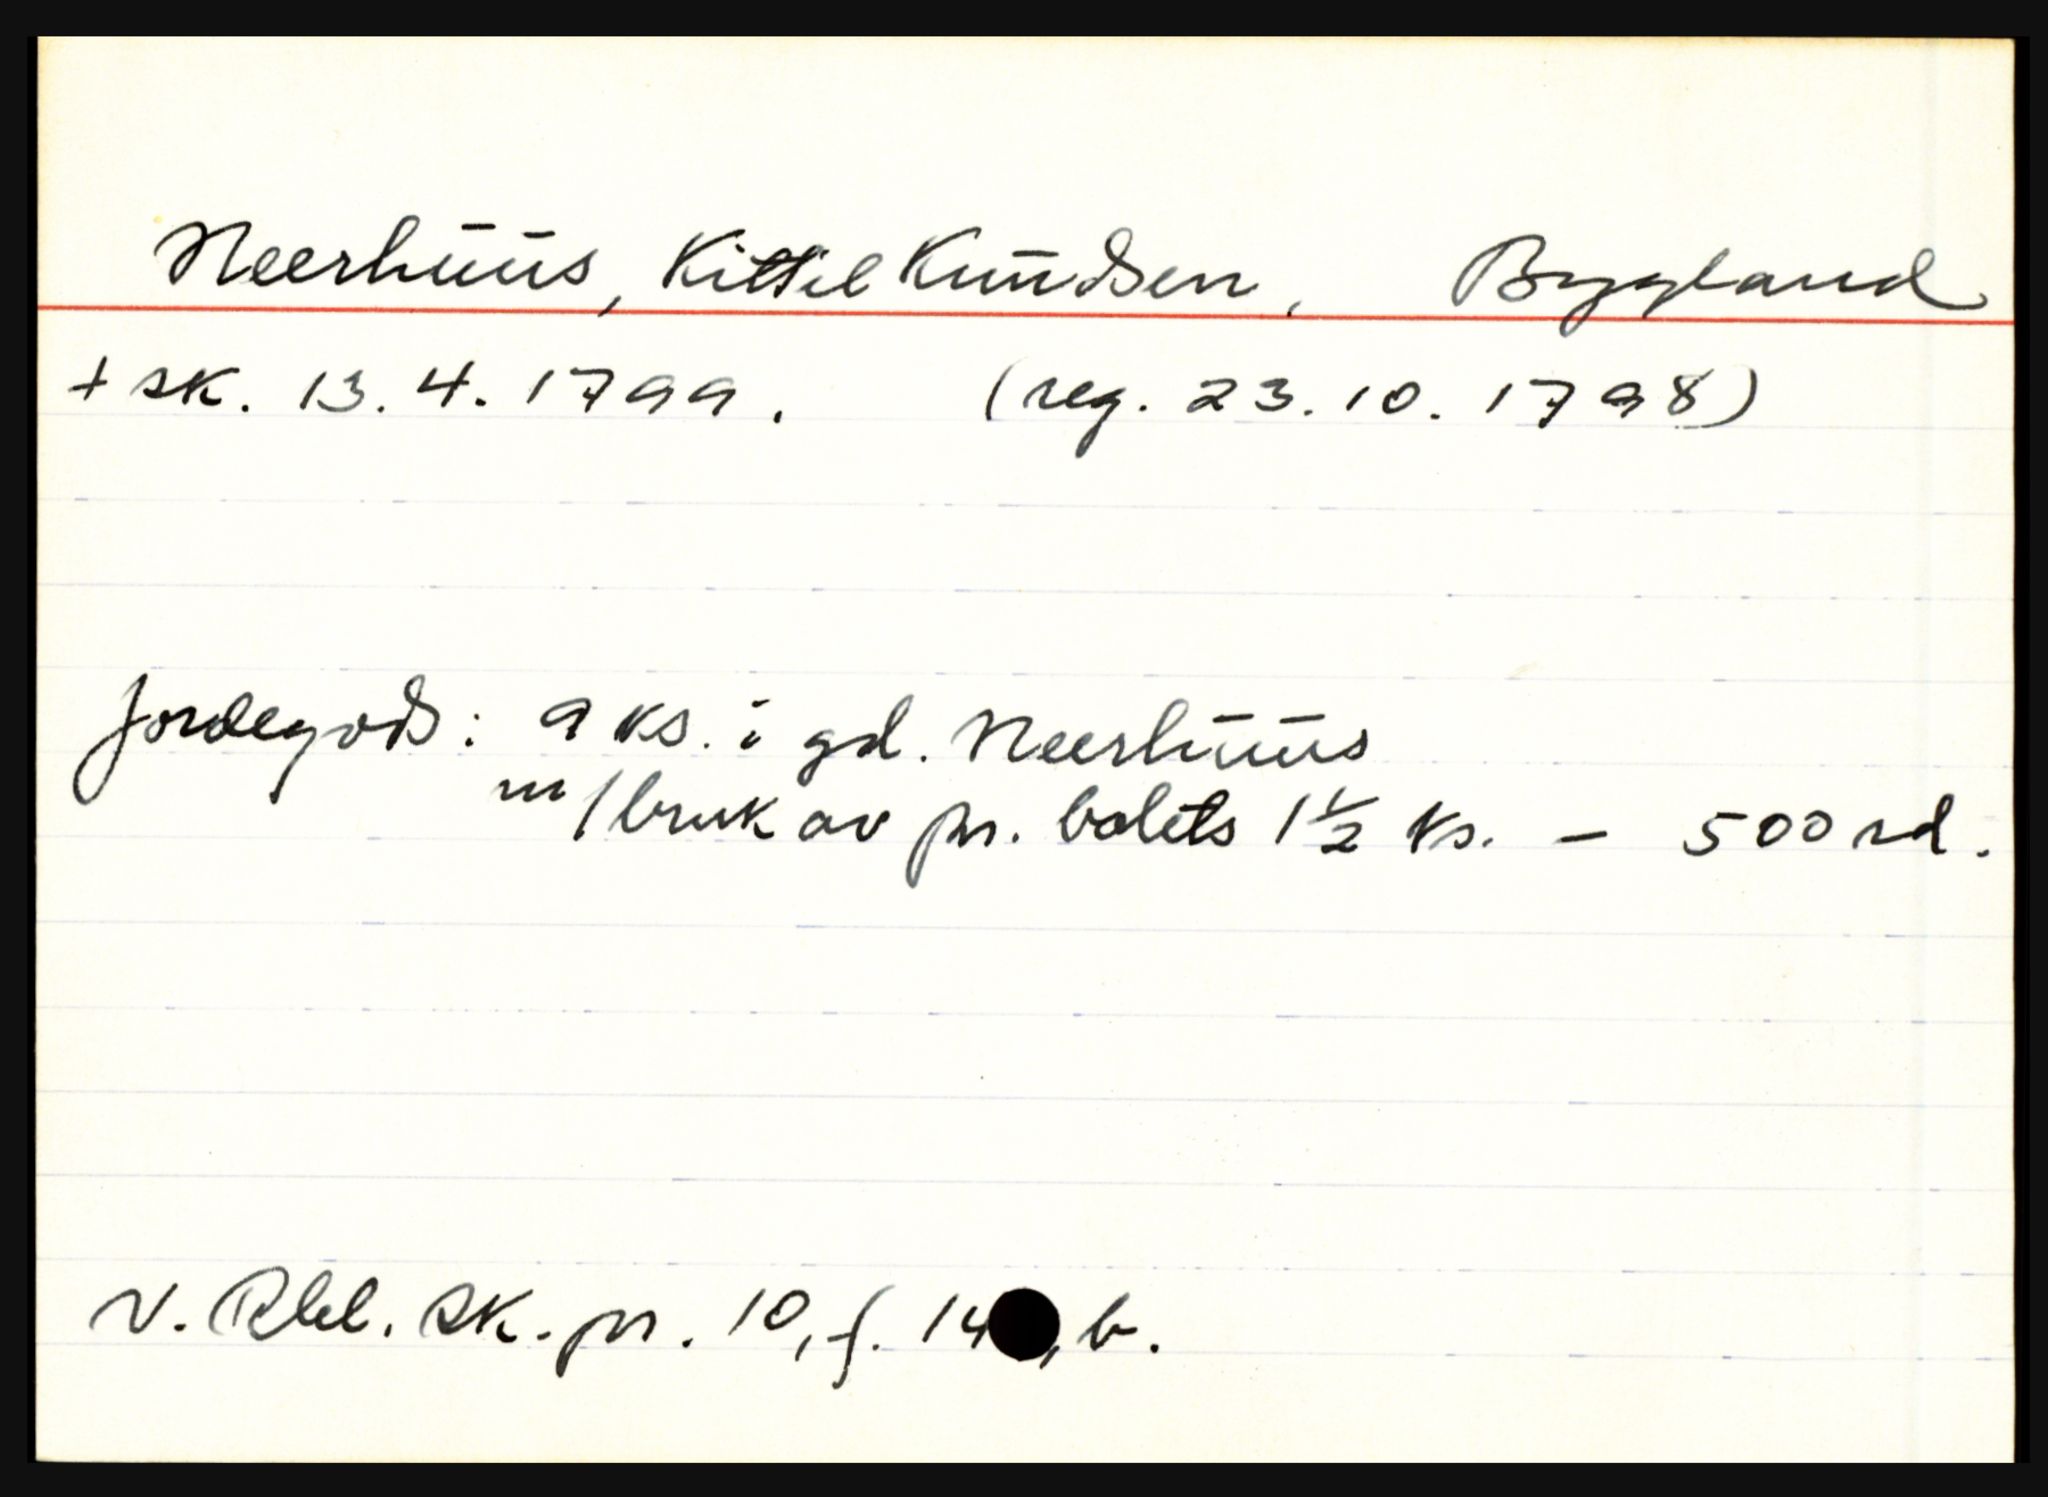 Neerhuus, Kittel Knudsen, Bygland
+ sk. 13. 4. 1799. (reg. 23. 10. 1798)
Jordegods: 9 ks. i gd. Neerhuus
m/bruk av pr. bolets 1 1/2 ks. - 500 rd.
V. Rbl. sk. pr. 10, f. 14 , b.